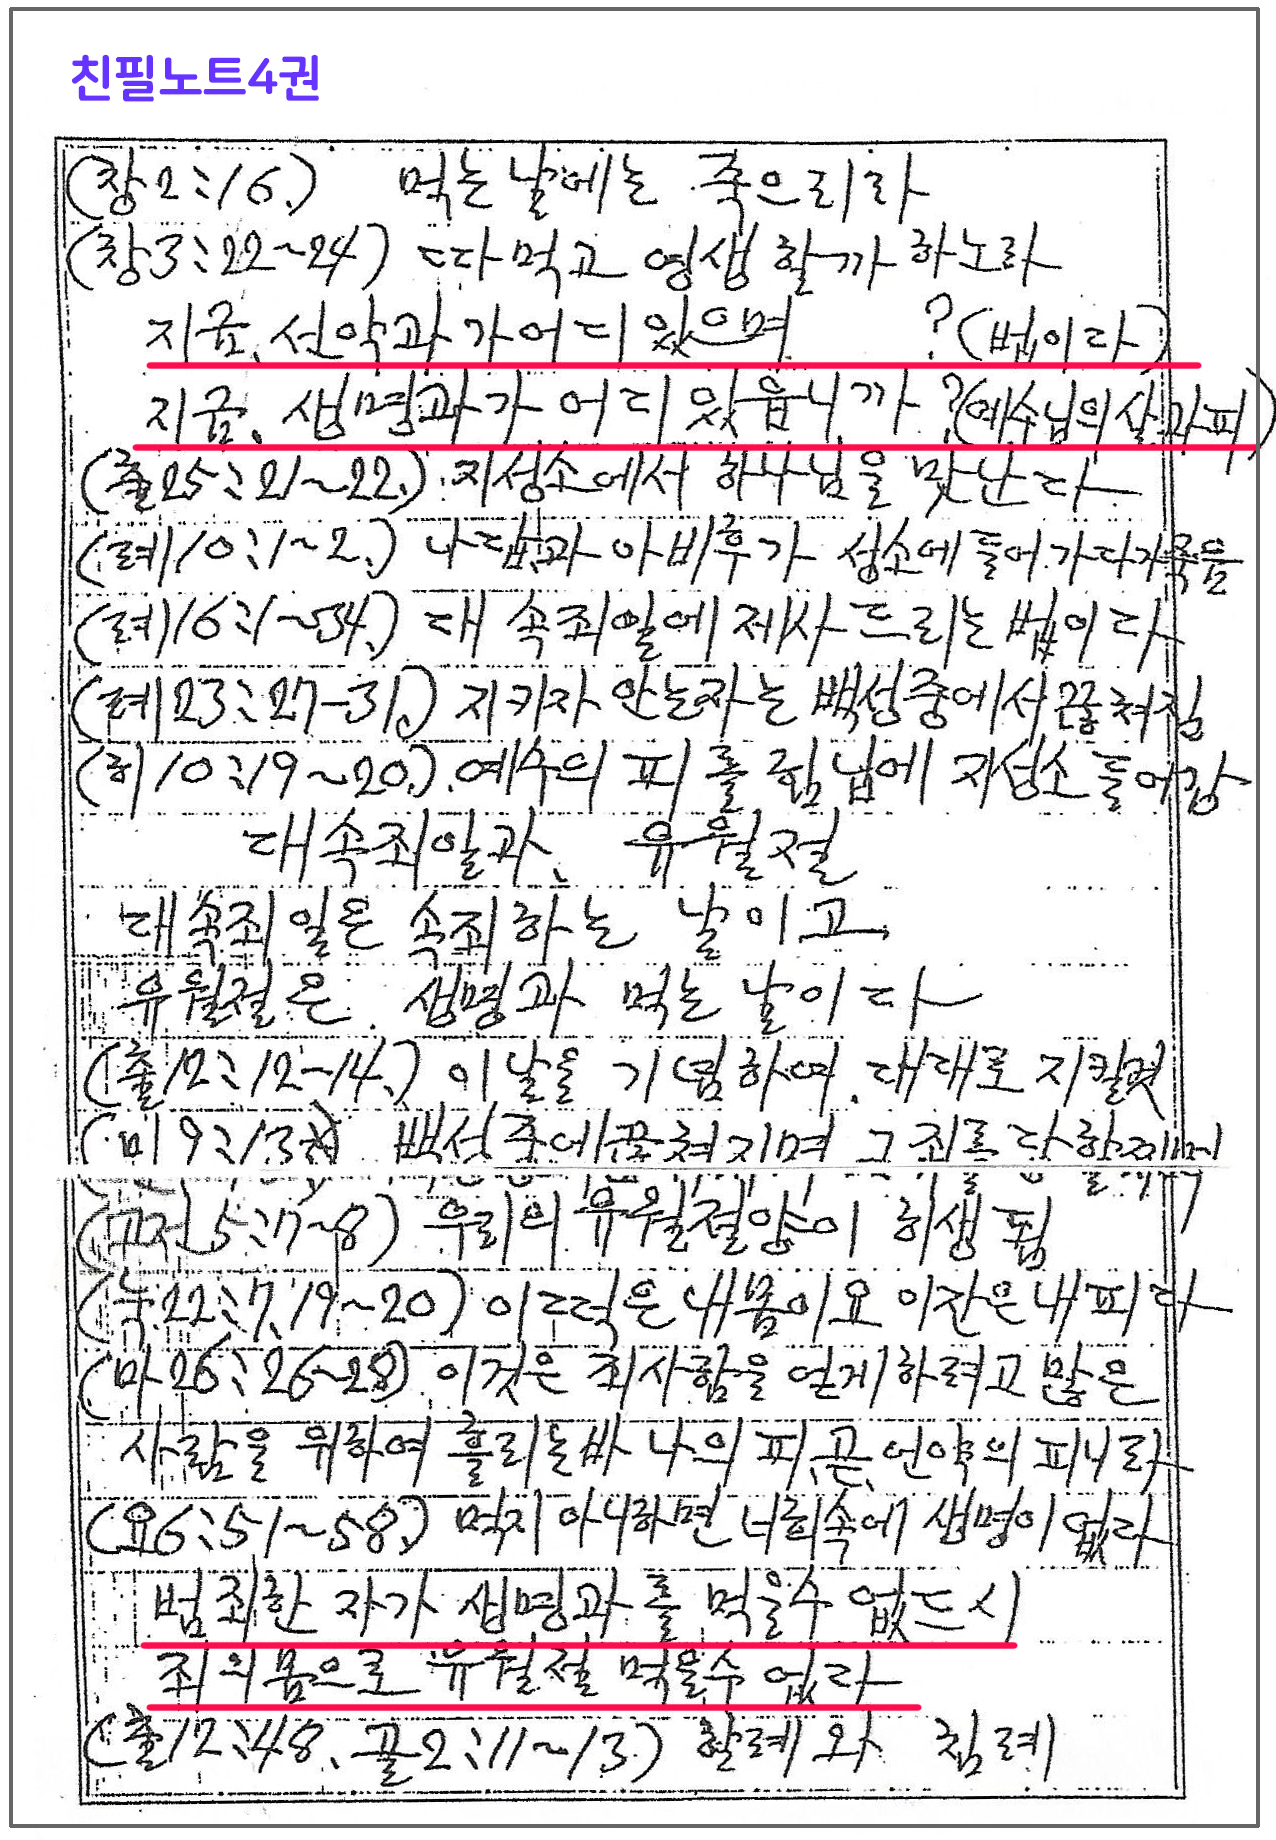 친필노트4권
(창2:16.) 먹는날에는 죽으리라
(창3:22~24) 따먹고 영생할까하노라
지금, 선악과가어디있으며 ?(법이라)
지금, 생명과가어디있읍니까?(예수님의살과피)
(출25:21~22.) 지성소에서 하나님을 맛난다
(레10:1~2.) 나답과 아비후가 성소에들어가다가죽음
(레16:1~34.) 대속죄일에제사드리는법이다
(레23:27-31.) 지키자안는자는백성중에서끊쳐짐
(히10:19~20.) 예수의 피를힘닙에 지성소들어감
대속죄일과, 유월절
대속죄일은 속죄하는 날이고,
유월절은 생명과 먹는날이다
(출12:12-14.) 이날을 기념하여 대대로지킬것
(미9:13) 백성중에끊쳐지며 그죄를당할찌며
(고전5:7~8) 우리의유월절양이 희생됨
(눅22:7,19~20) 이떡은내몸이요이잔은내피라
(마26:26~28) 이것은 죄사함을얻게하려고많은
사람을위하여흘리는바나의피,곧,언약의피니라
(요6:51~58.) 먹지아니하면너희속에생명이없라
범죄한자가생명과를먹을수없드시
죄의몸으로유월절먹을수없라
(출12:48, 골2:11~13.) 할례와 침례